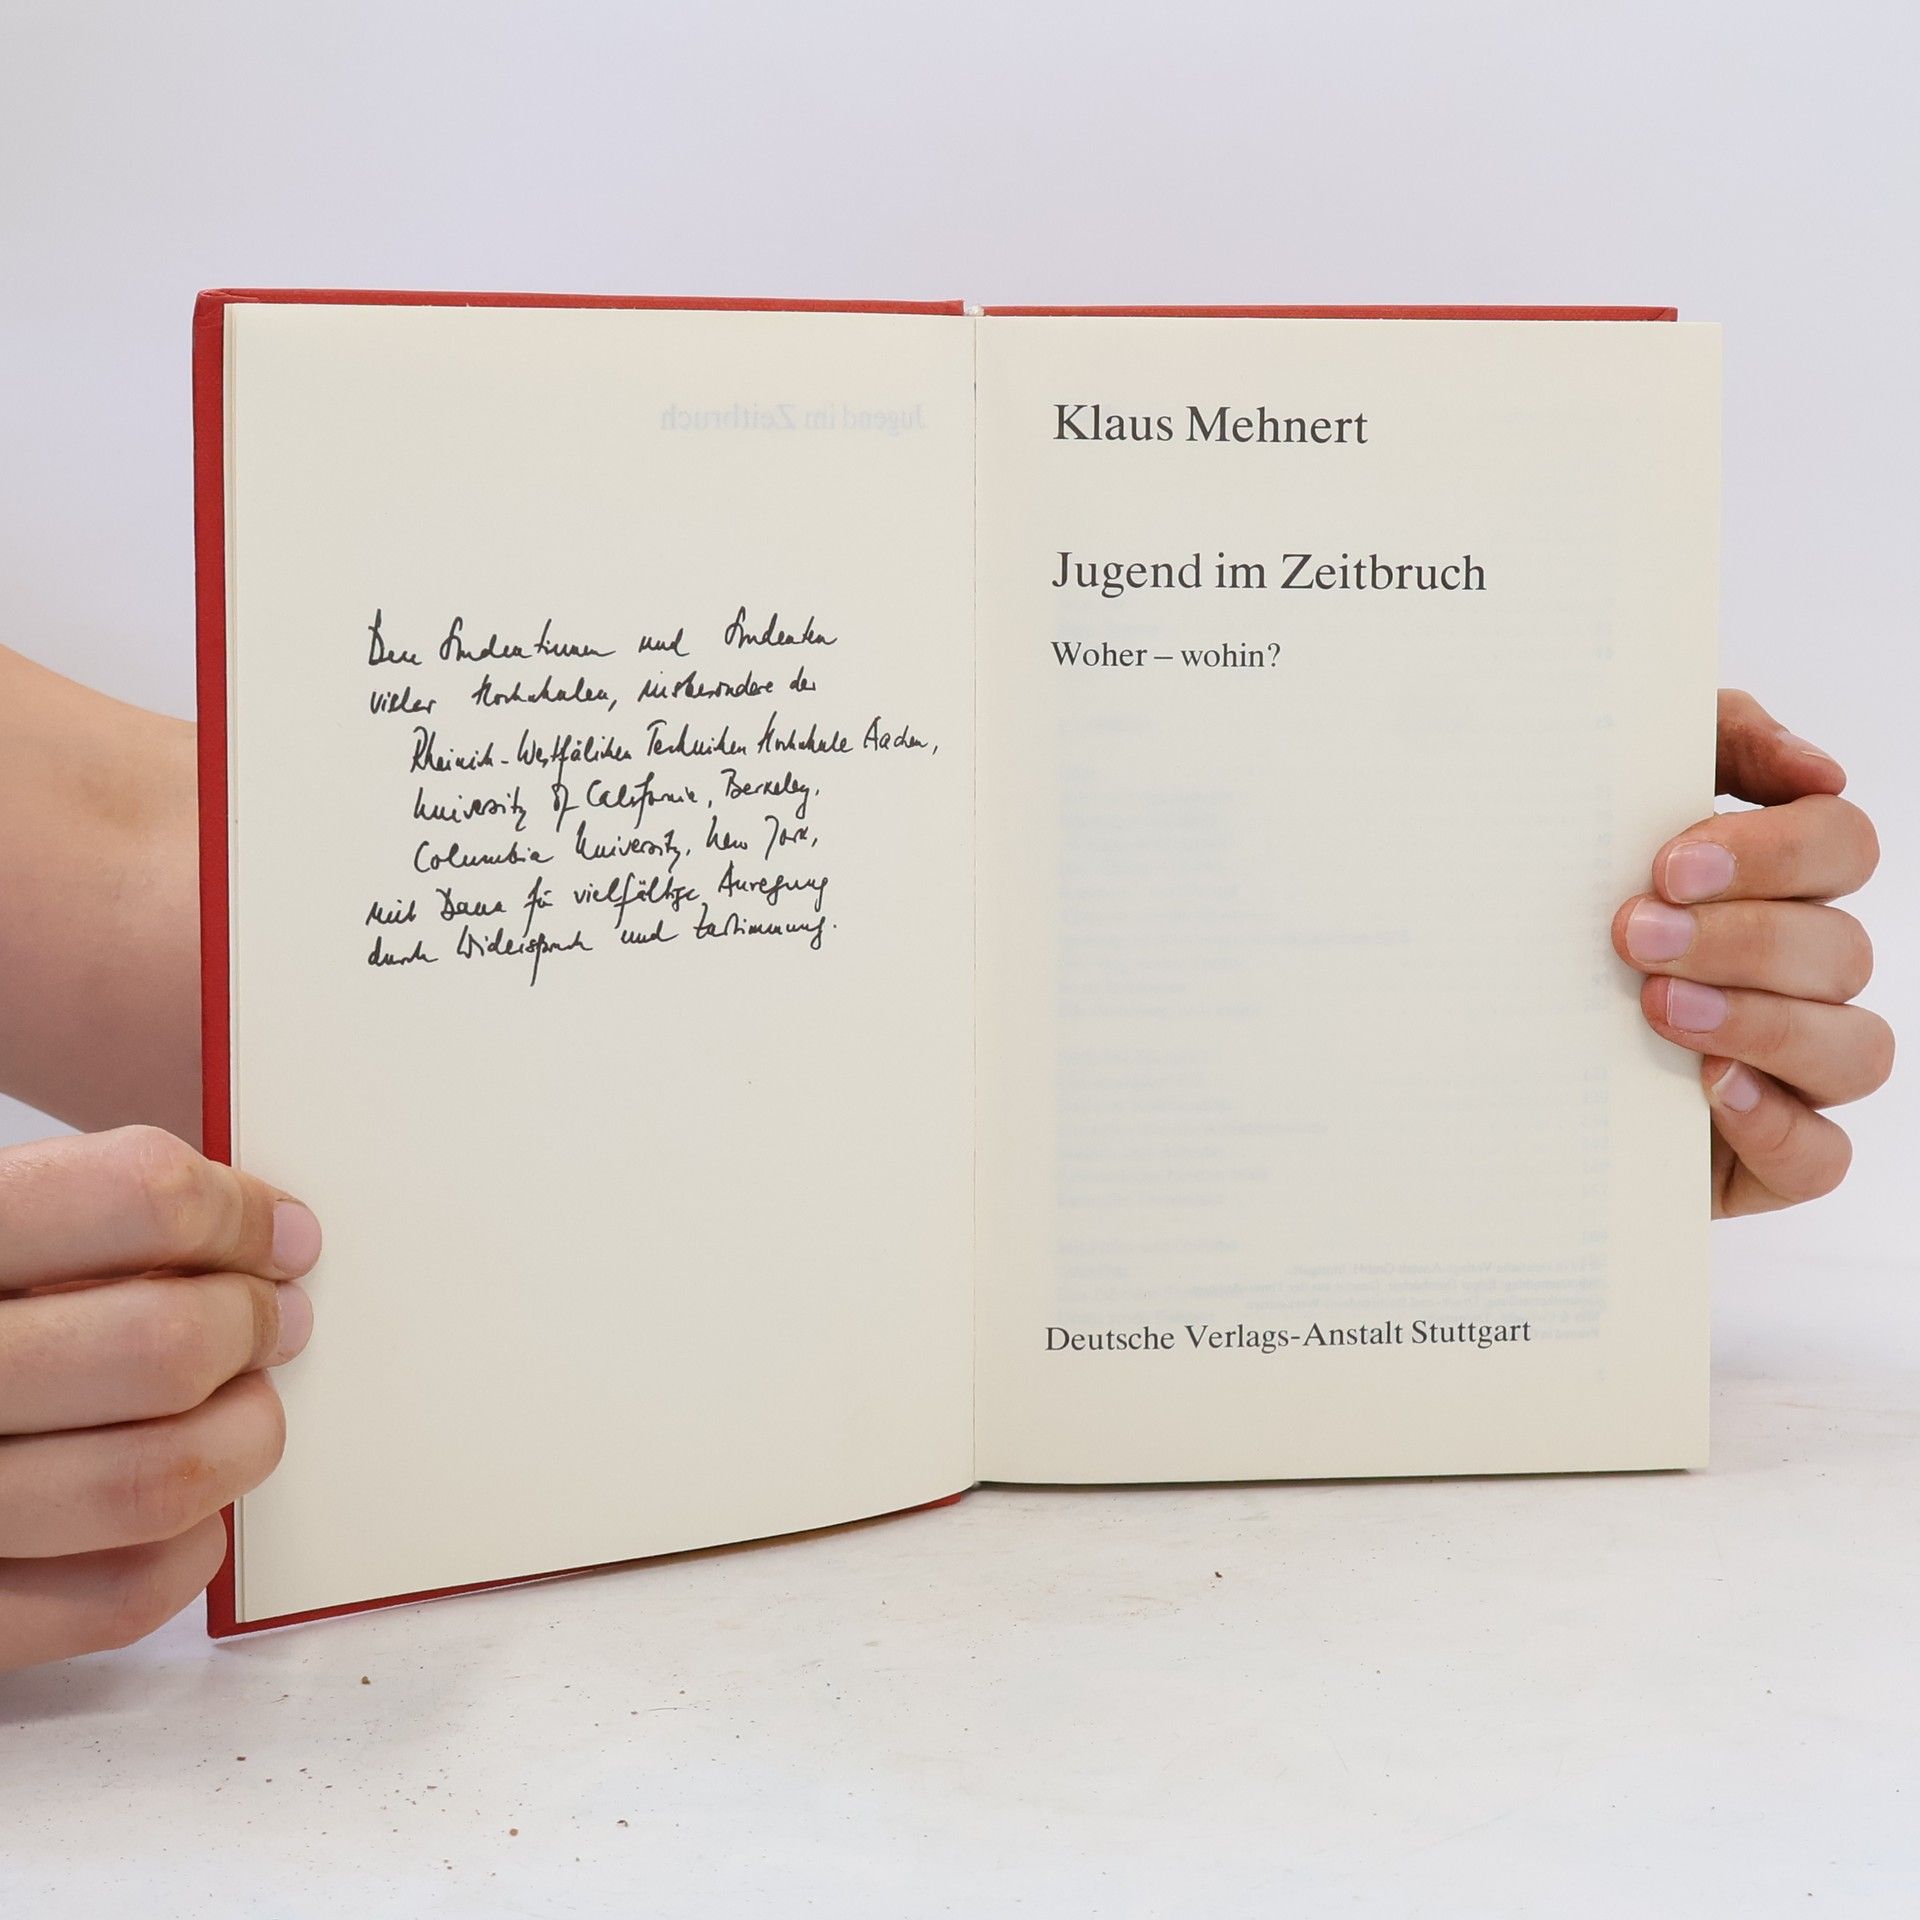 Jugend im Zeitbruch
Den Studentinnen und Studenten
vieler Hochschulen, insbesondere der
Rheinisch-Westfälischen Technischen Hochschule Aachen,
University of California, Berkeley,
Columbia University, New York,
mit Dank für vielfältige Anregung
durch Widerspruch und Zustimmung.
Klaus Mehnert
Jugend im Zeitbruch
Woher – wohin?
Deutsche Verlags-Anstalt Stuttgart